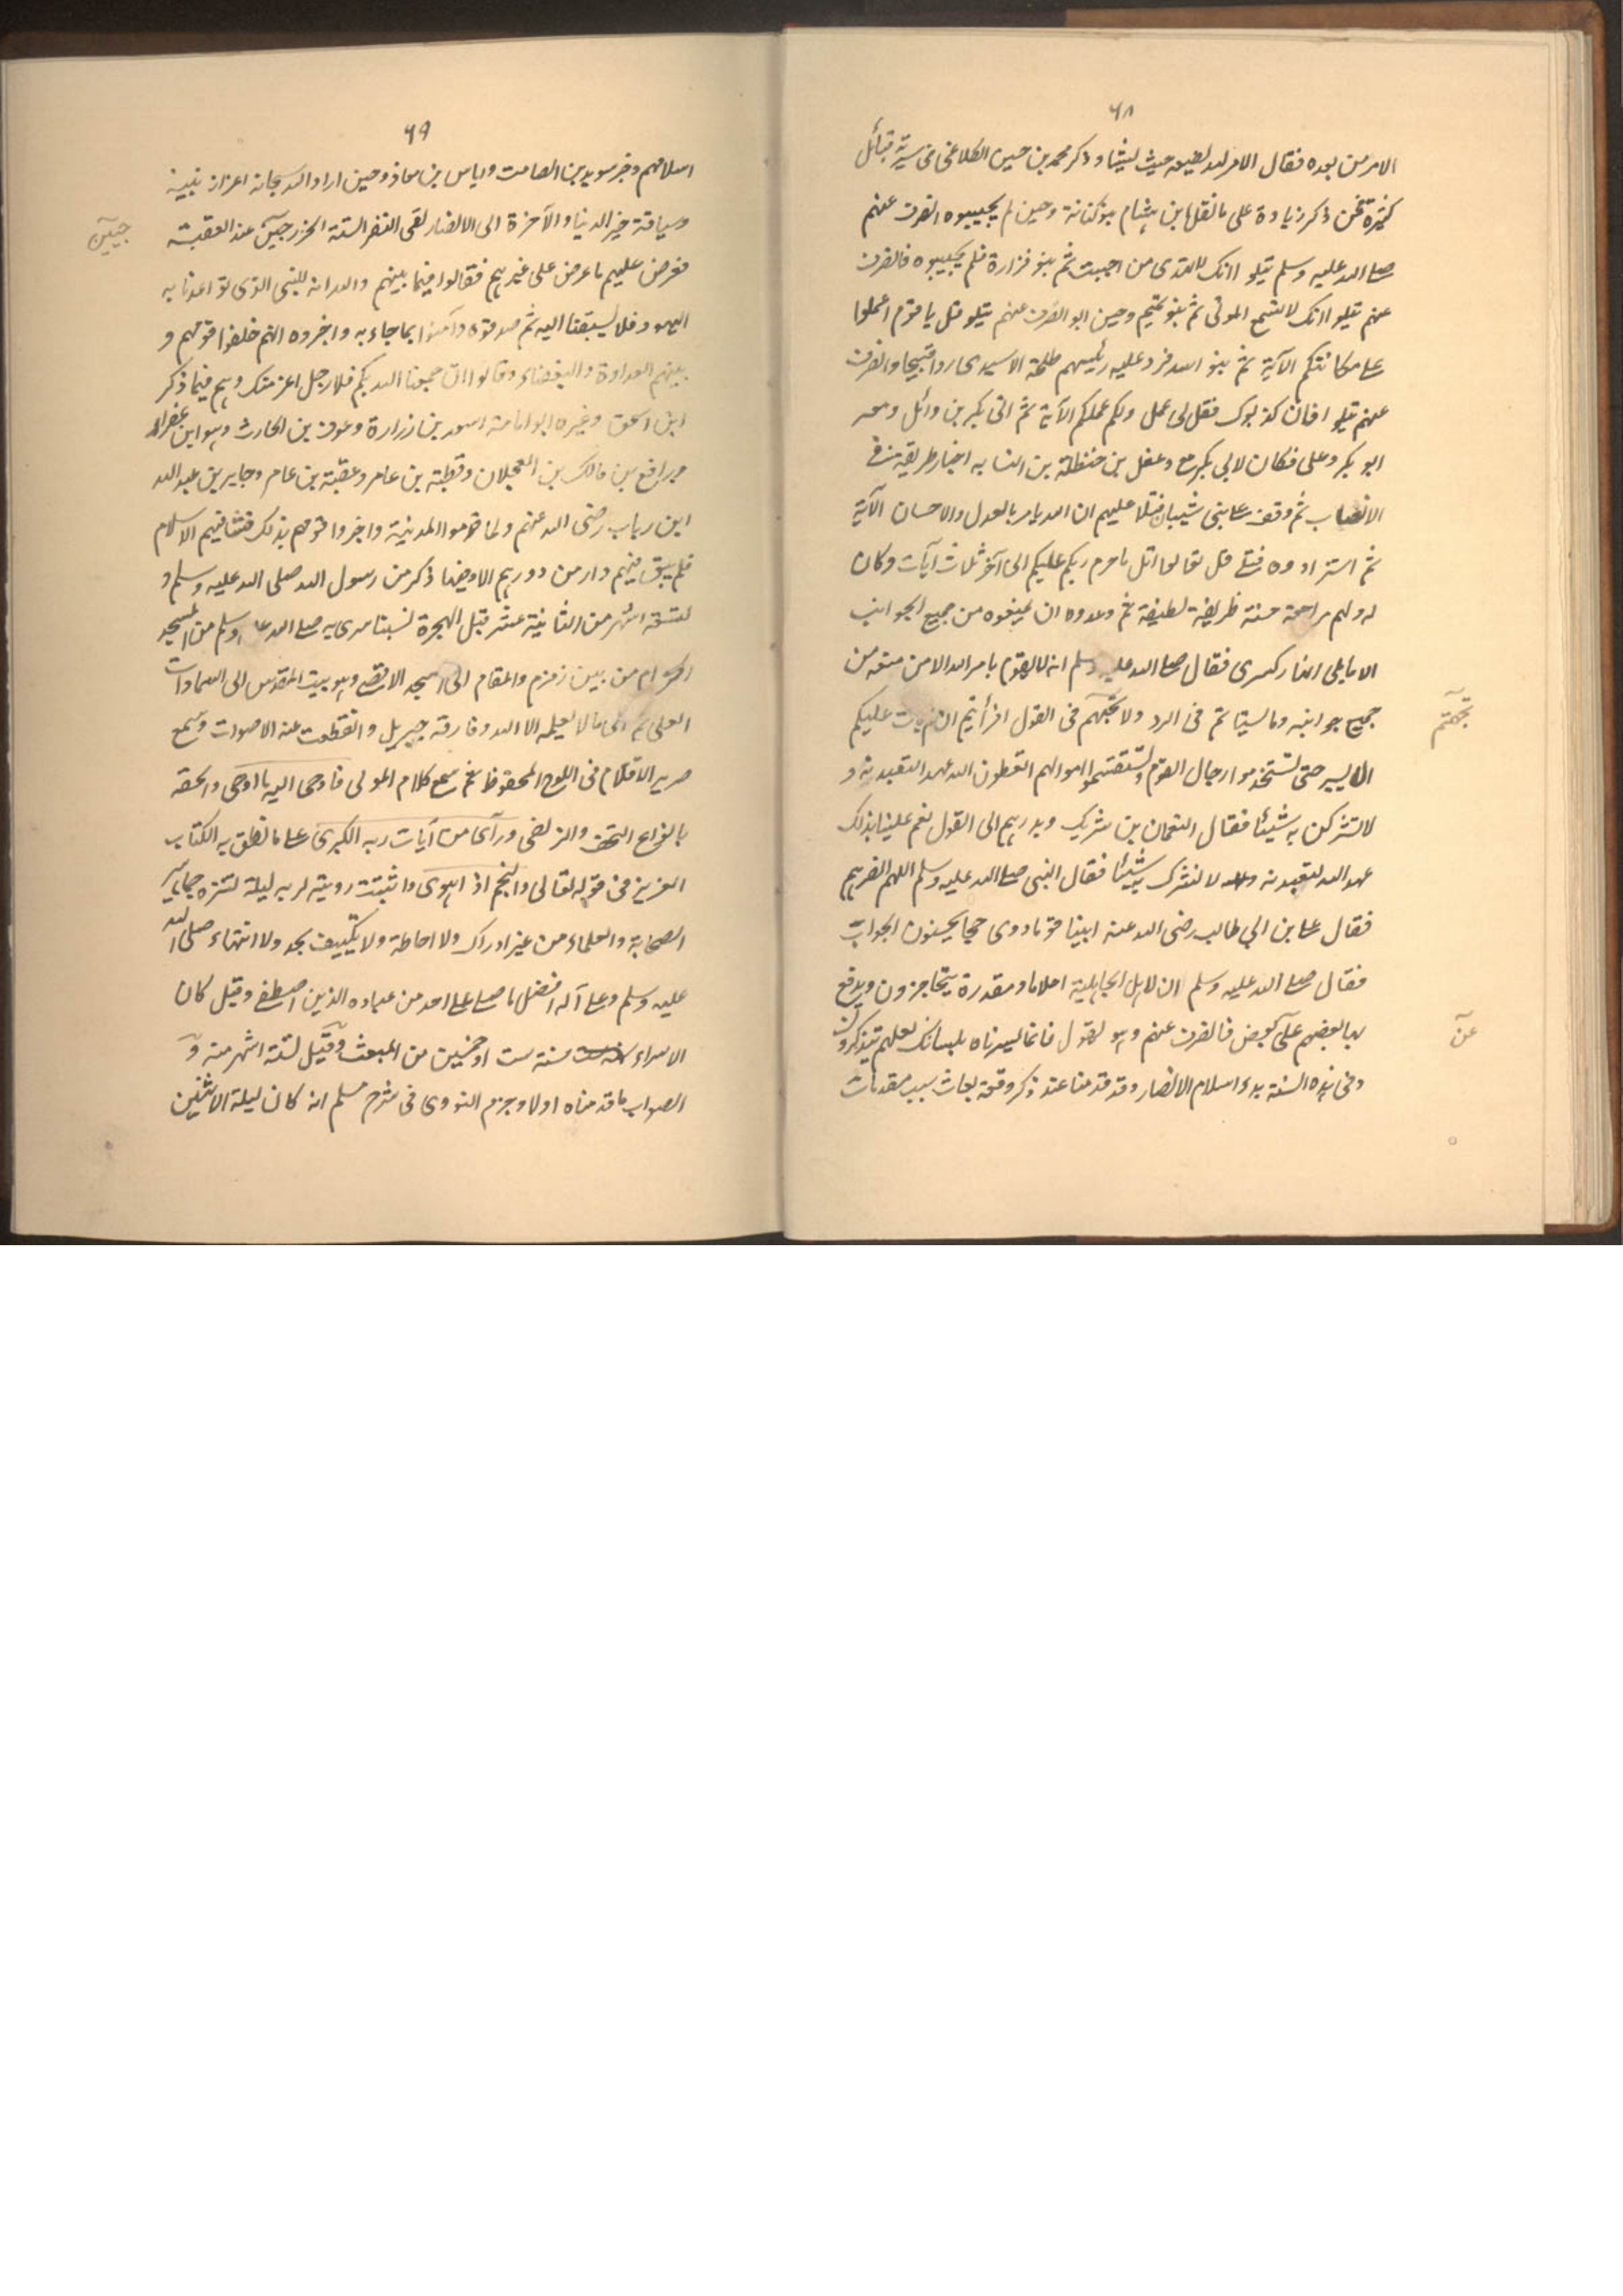 ٦٨
الامر من بعده فقال الامر لله يضعه حيث يشاء وذكر محمد بن حسين الكلاعي في سيرته قبائل
كثيرة ممن ذكر زيادة على ما نقل ابن هشام بنو كنانة وحين لم يجيبوه انصرف عنهم
صلى الله عليه وسلم يتلو انك لا تهدي من احببت ثم بنو فزارة فلم يجيبوه فانصرف
عنهم يتلو انك لا تسمع الموتى ثم بنو تميم وحين ابوا انصرف عنهم يتلو قل يا قوم اعملوا
على مكانتكم الآية ثم بنو اسد فرد عليه رئيسهم طلحة الاسدي ردا قبيحا وانصرف
عنهم يتلو افان كذبوك فقل لي عمل ولكم عملكم الآية ثم اتى بكر بن وائل ومعه
ابو بكر وعلي فكان لابي بكر مع دغفل بن حنظلة بن النسابه اخبار طريقة في
الانساب ثم وقف على بني شيبان فتلا عليهم ان الله يامر بالعدل والاحسان الآية
ثم استزادوه فتلى قل تعالوا اتل ما حرم ربكم عليكم الى آخر ثلاث آيات وكان
له ولهم مراجعة حسنة ظريفة لطيفة ثم وعدوه ان يمنعوه من جميع الجوانب
الا ما يلي انهار كسرى فقال صلى الله عليه وسلم انه لا يقوم بامر الله الا من منعه من
جميع جوانبه وما اسيتم في الرد ولا تجهتم في القول افرأيتم ان لم يات عليكم
تجهتم
الا اليسير حتى تستخدموا رجال القوم وتستقسموا اموالهم اتعطون الله عهدا لتعبدنه و
لا تشركن به شيئا فقال النعمان بن شريك وبدرهم الى القول نعم علينا بذلك
عهد الله لنعبدنه ولا نشرك به شيئا فقال النبي صلى الله عليه وسلم اللهم انصرهم
فقال على بن ابي طالب رضي الله عنه ابينا قوما ذوي حجا يحسنون الجواب
فقال صلى الله عليه وسلم ان لاهل الجاهلية احلاما ومقدرة يتحاجزون ويدفع
بها بعضهم عن بعض فانصرف عنهم وهو يقول فانما يسرناه بلسانك لعلهم يتذكرون
عن
وفي هذه السنة بدء اسلام الانصار وقد قدمنا عند ذكر وقعة بعاث سبب مقدمات
٦٩
اسلامهم وخبر سويد بن الصامت واياس بن معاذ وحين اراد الله سبحانه اعزاز نبيه
وسياقة خير الدنيا والآخرة الى الانصار لقي النفر الستة الخزرجيين عند العقبة
جيين
فعرض عليهم ما عرض على غيرهم فقالوا فيما بينهم والله انه للنبي الذي توعدنا به
اليهود فلا يسبقنا اليه ثم صدقوه وآمنوا بما جاء به واخبروه انهم خلفوا قومهم و
بينهم العداوة والبغضاء وقالوا ان جمعنا الله بكم فلا رجل اعز منك وهم فيما ذكر
ابن اسحق وغيره ابو امامة اسعد بن زرارة وعوف بن الحارث وهو ابن عفراء
ورافع بن مالك بن العجلان وقطبة بن عامر وعقبة بن عامر وجابر بن عبد الله
ابن رياب رضي الله عنهم ولما قدموا المدينة واخبروا قومهم بذلك فشا فيهم الاسلام
فلم يبق فيهم دار من دورهم الا وفيها ذكر من رسول الله صلى الله عليه وسلم و
لتسعة اشهر من الثانية عشر قبل الهجرة لسبتا سري به صلى الله عليه وسلم من المسجد
الحرام من بين زمزم والمقام الى المسجد الاقصى وهو بيت المقدس الى السماوات
العلى ثم الى ما لا يعلمه الا الله وفارقه جبريل وانقطعت عنه الاصوات وسمع
صرير الاقلام في اللوح المحفوظ ثم سمع كلام المولى فاوحى اليه ما اوحى واتحفه
بانواع التحف والزلفى ورآى من آيات ربه الكبرى على ما نطق به الكتاب
العزيز في قوله تعالى والنجم اذا هوى واثبتت رويته لربه ليلة لتنزه جماهير
الصحابة والعلماء من غير ادراك ولا احاطة ولا تكييف بحد ولا انتهاء صلى الله
عليه وسلم وعلى آله افضل ما صلى على احد من عباده الذين اصطفى وقيل كان
الاسراء سنة ست او خمسين من المبعث وقيل لستة اشهر منه و
الصواب ما قدمناه اولا وجزم النووي في شرح مسلم انه كان ليلة الاثنين